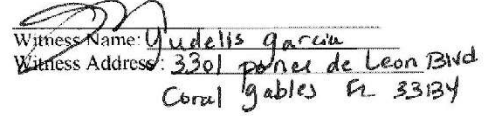 Witness Name: Yudelis garcia
Witness Address: 3301 ponce de Leon Blvd
Coral gables FL 33134